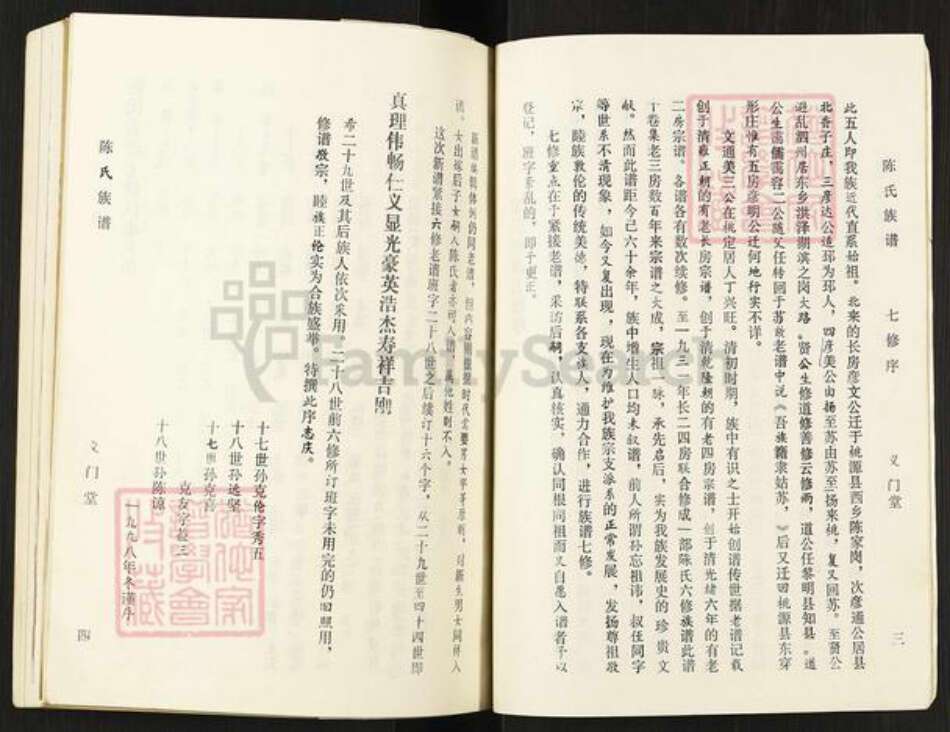 陈氏族谱 七修序 义门堂 三
此五人即我族近代直系始祖。北来的长房彦文公迁于桃源县西乡陈家岗，次彦通公居县
北香子庄，三彦达公迨邳为邳人，四彦美公由扬至苏由苏至扬来桃，复又回苏。至贤公
避乱泗州居东乡洪泽湖滨之岗大路。贤公生修道修善修云修雨，道公任黎明县知县。道
公生蔼儒蔼容二公随父任转回于苏故老谱中说《吾族籍隶姑苏，》后又迁回桃源县东穿
形庄惟有五房彦明公迁何地行实不详。
文通美三公在桃定居人丁兴旺。清初时期，族中有识之士开始创谱传世据老谱记载
创于清雍正朝的有老长房宗谱，创于清乾隆朝的有老四房宗谱，创于清光绪六年的有老
二房宗谱。各谱各有数次续修。至一九三一年长二四房联合修成一部陈氏六修族谱此谱
十卷集老三房数百年来宗谱之大成，宗祖一脉，承先启后，实为我族发展史的珍贵文
献。然而此谱距今已六十余年，族中增生人口均未叙谱，前人所谓孙忘祖讳，叔侄同字
等世系不清现象，如今又复出现，现在为维护我族宗支派系的正常发展，发扬尊祖敬
宗，睦族敦伦的传统美德，特联系各支族人，通力合作，进行族谱七修。
七修重点在于紧接老谱，采访后嗣，认真核实，确认同根同祖而又自愿入谱者予以
登记，班字紊乱的，即予更正。
新谱编辑体例仍同老谱，但内容则根据时代需要男女平等原则，对新生男女同样入
谱。女出嫁后子女嗣入陈氏者亦可入谱，其他姓则不入。
这次新谱紧接六修老谱班字二十八世之后续订十六个字，从二十九世至四十四世即
真理伟畅仁义显光豪英浩杰寿祥吉刚
希二十九世及其后族人依次采用。二十八世前六修所订班字未用完的仍旧照用，
修谱敬宗，睦族正伦实为合族盛举。特撰此序志庆。
十七世孙克伦字秀五
十八世孙远坚
十七世孙克喜
克友字益三
十八世孙陈谅
一九九八年冬谨序
陈氏族谱 义门堂 四
FamilySearch